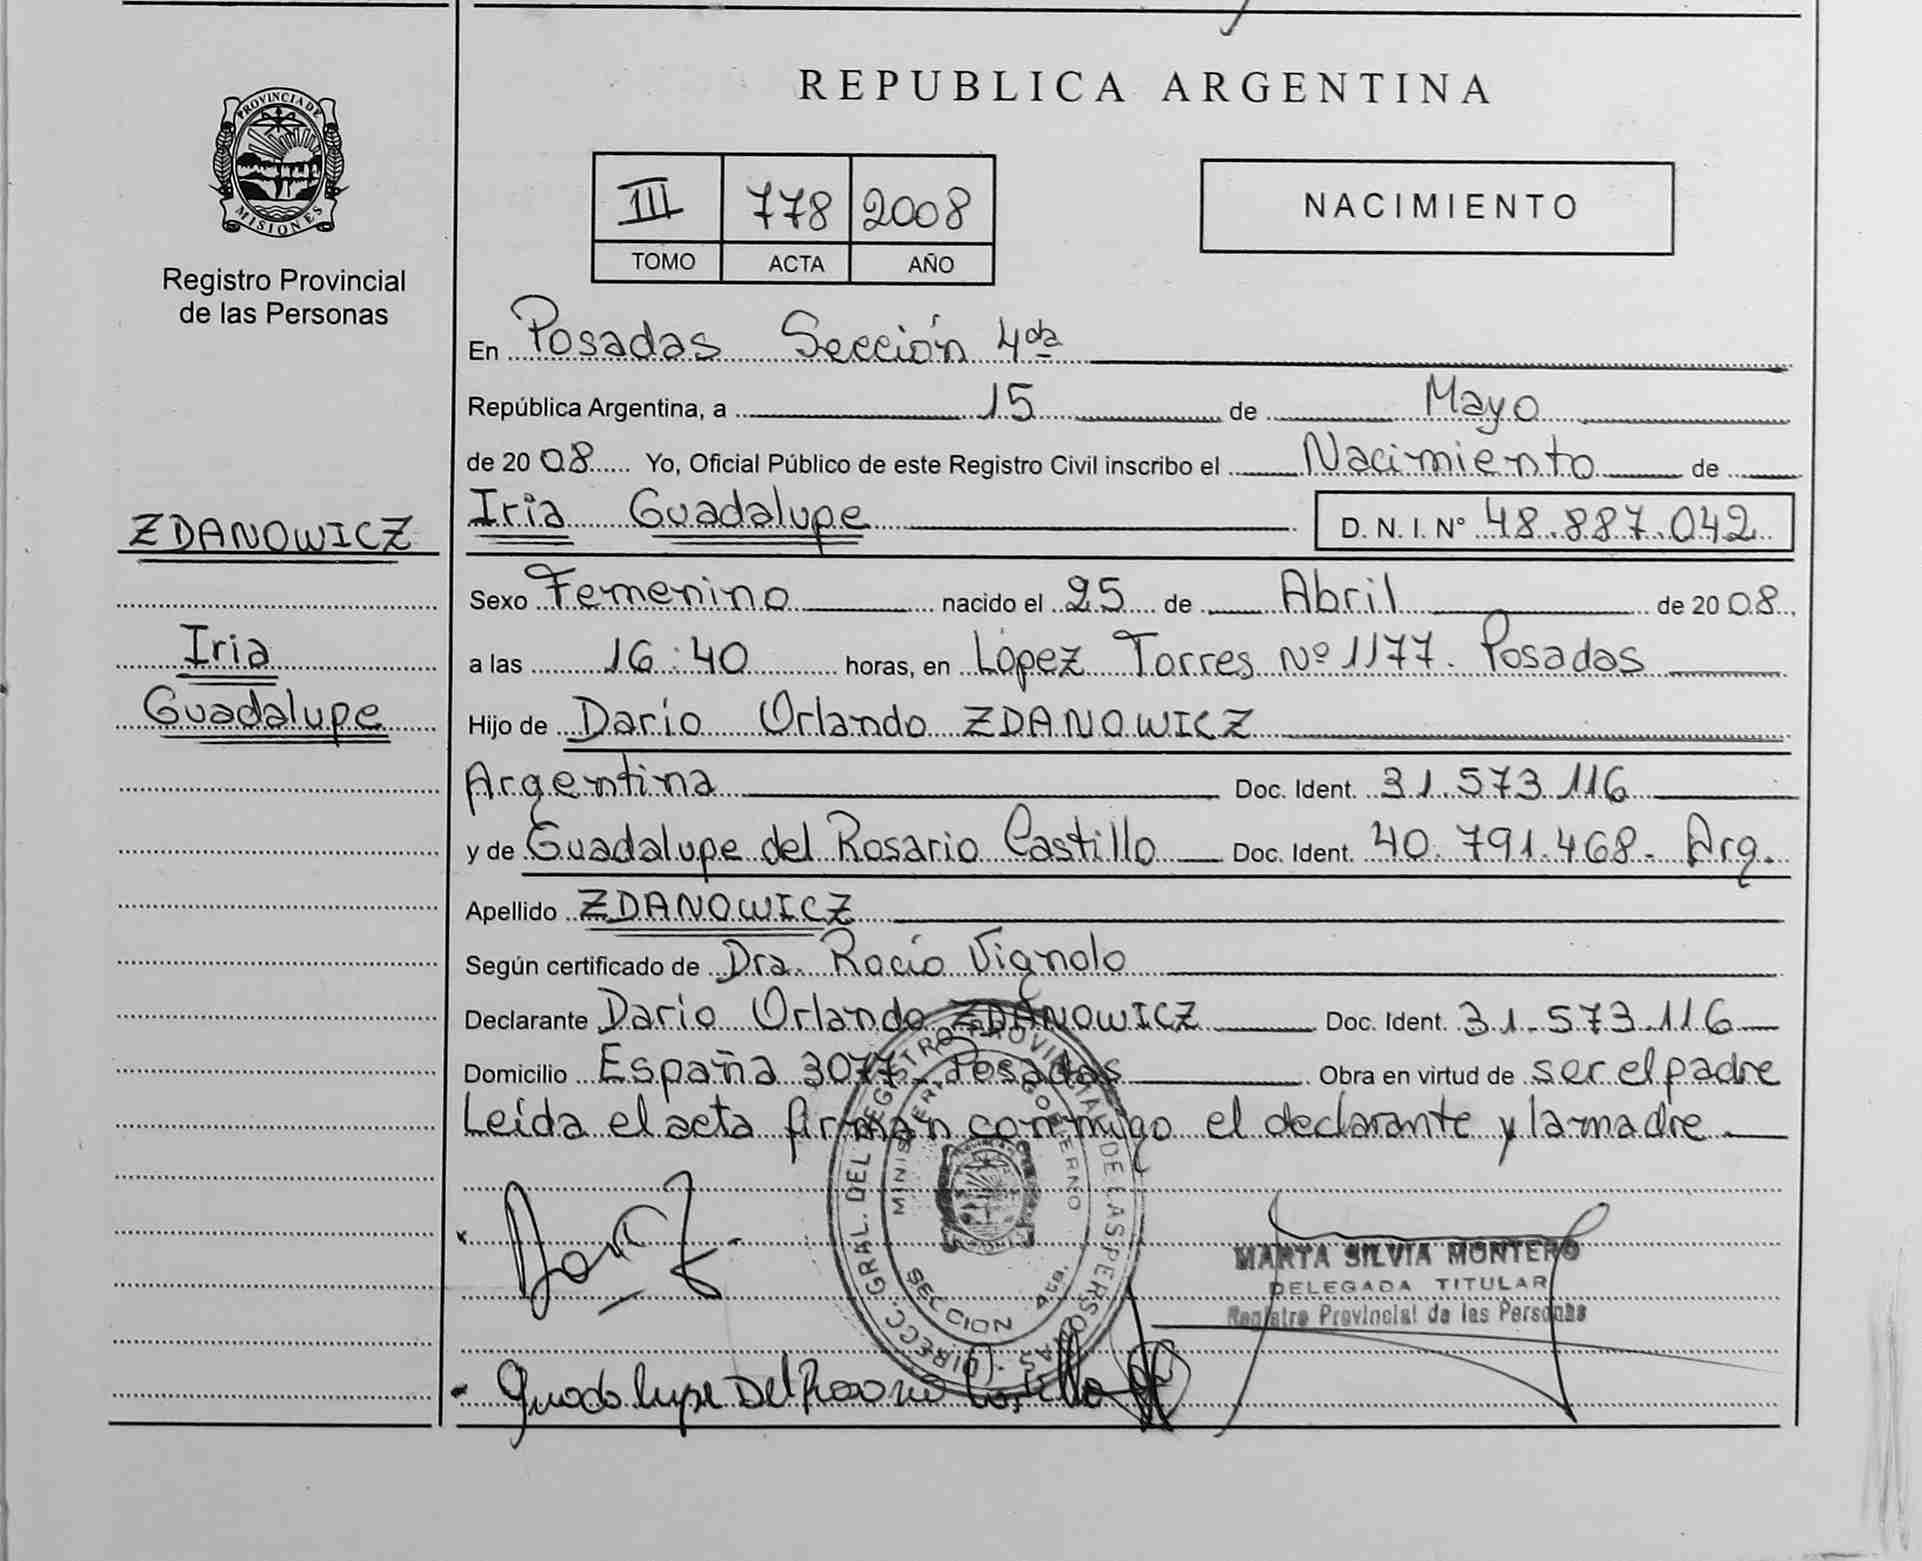 REPUBLICA ARGENTINA
PROVINCIA DE
MISIONES
Registro Provincial
de las Personas
III 778 2008
TOMO ACTA AÑO
NACIMIENTO
En Posadas Sección 4da
República Argentina, a 15 de Mayo
de 2008 Yo, Oficial Público de este Registro Civil inscribo el Nacimiento de
ZDANOWICZ
Iria
Guadalupe
Iria Guadalupe D. N. I. Nº 48.887.042
Sexo Femenino nacido el 25 de Abril de 2008
a las 16:40 horas, en López Torres Nº 1177. Posadas
Hijo de Darío Orlando ZDANOWICZ
Argentina Doc. Ident. 31.573.116
y de Guadalupe del Rosario Castillo Doc. Ident. 40.791.468. Arg.
Apellido ZDANOWICZ
Según certificado de Dra. Rocío Vignolo
Declarante Darío Orlando ZDANOWICZ Doc. Ident. 31.573.116
Domicilio España 3077. Posadas Obra en virtud de ser el padre
Leída el acta firman conmigo el declarante y la madre
DIRECC. GRAL. DEL REGISTRO PROVINCIAL DE LAS PERSONAS
MINISTERIO GOBIERNO
SECCION 4ta.
MARTA SILVIA MONTERO
DELEGADA TITULAR
Registro Provincial de las Personas
Guadalupe Del Rosario Castillo